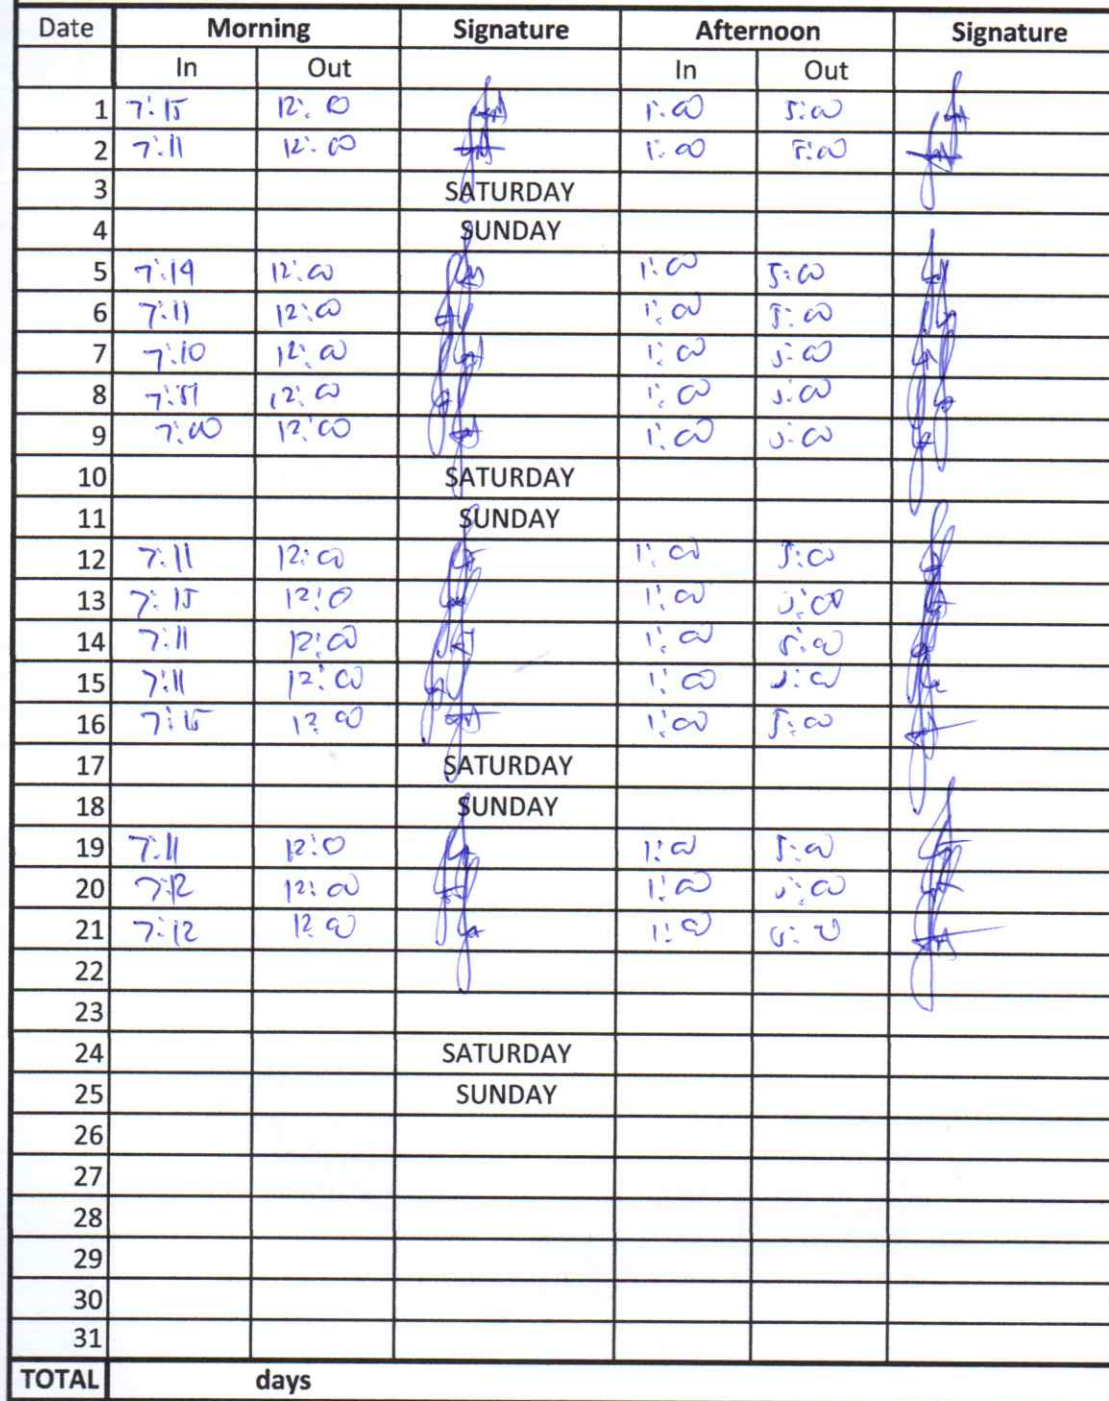 Date Morning Signature Afternoon Signature
In Out In Out
1 7:15 12:00 1:00 5:00
2 7:11 12:00 1:00 5:00
3 SATURDAY
4 SUNDAY
5 7:14 12:00 1:00 5:00
6 7:11 12:00 1:00 5:00
7 7:10 12:00 1:00 5:00
8 12:00 1:00 5:00
9 7:00 12:00 1:00 5:00
10 SATURDAY
11 SUNDAY
12 7:11 12:00 1:00 5:00
13 7:15 12:0 1:00 5:00
14 7:11 12:00 1:00 5:00
15 7:11 12:00 1:00 5:00
16 7:15 12 00 1:00 5:00
17 SATURDAY
18 SUNDAY
19 7:11 12:0 1:00 5:00
20 7:12 12:00 1:00 5:00
21 7:12 12:00 1:00 5:00
22
23
24 SATURDAY
25 SUNDAY
26
27
28
29
30
31
TOTAL days